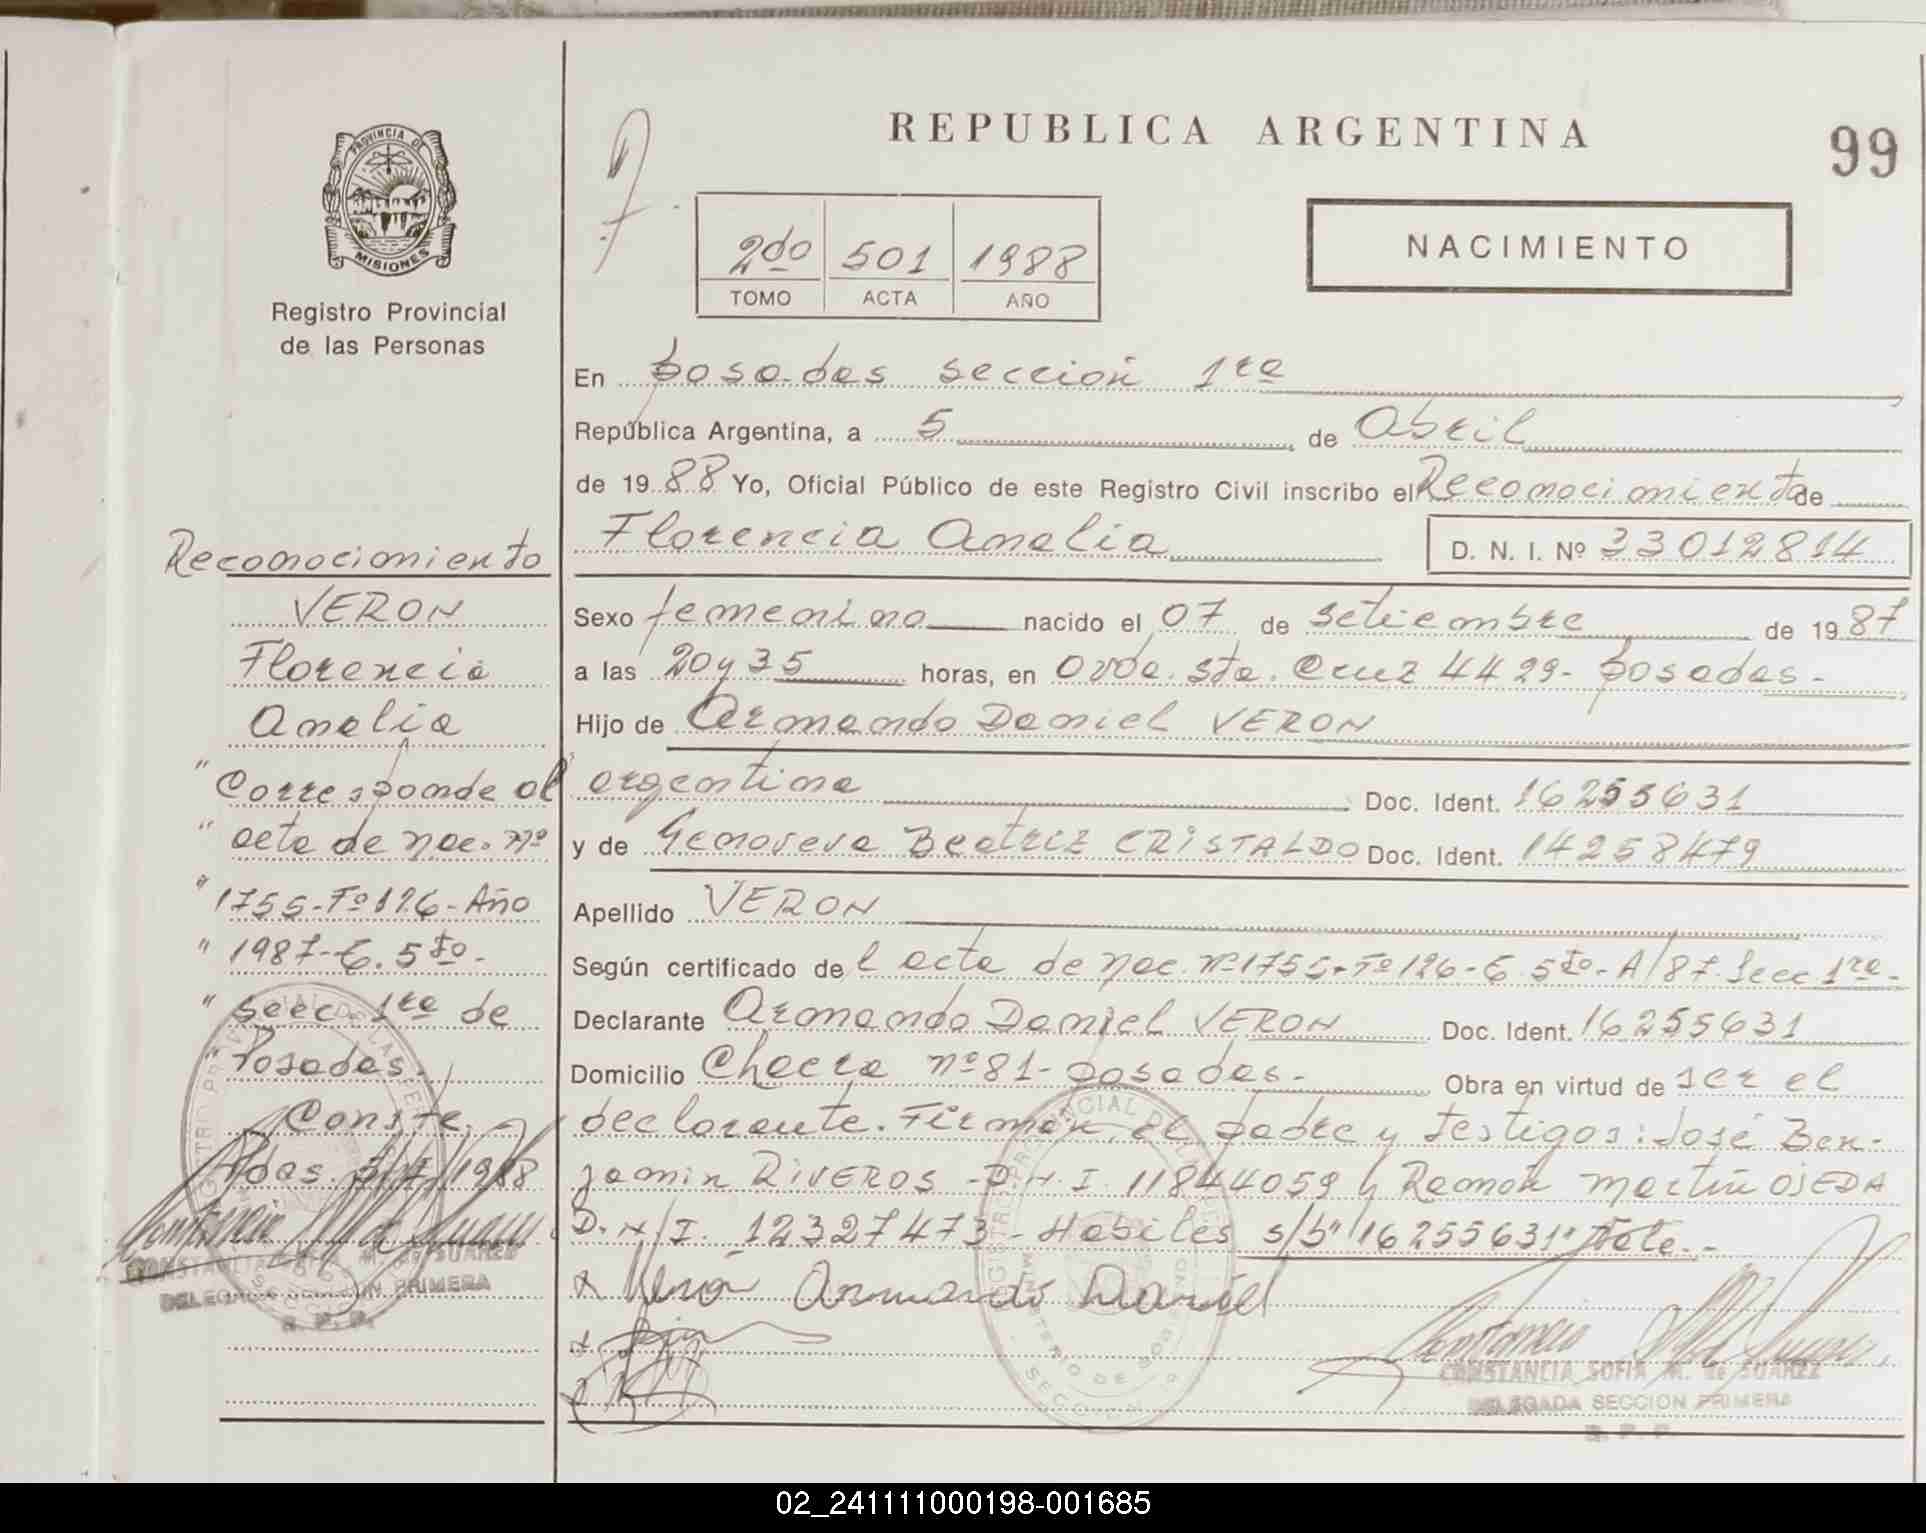 REPUBLICA ARGENTINA
99
PROVINCIA DE
MISIONES
Registro Provincial
de las Personas
2do 501 1988
TOMO ACTA AÑO
NACIMIENTO
En Posadas sección 1ra
República Argentina, a 5 de Abril
de 1988 Yo, Oficial Público de este Registro Civil inscribo el Reconocimiento de
Florencia Analia D. N. I. Nº 33012814
Sexo femenino nacido el 07 de setiembre de 1987
a las 20y35 horas, en Avda. Sta. Cruz 4429- Posadas-
Hijo de Armando Daniel VERON
argentina Doc. Ident. 16255631
y de Genoveva Beatriz CRISTALDO Doc. Ident. 14258479
Apellido VERON
Según certificado del acta de nac. Nº1755-Fº126-T.5to-A/87.Secc 1ra-
Declarante Armando Daniel VERON Doc. Ident. 16255631
Domicilio Chacra nº81-Posadas- Obra en virtud de ser el
declarante. Firman el padre y testigos: José Ben-
jamin RIVEROS -D.N.I. 11844059 y Ramón Martín OJEDA
D.N.I. 12327473- Habiles s/b "16255631" Vale.-
x Veron Armando Daniel
CONSTANCIA SOFIA M. de SUAREZ
DELEGADA SECCION PRIMERA
R. P. P.
Reconocimiento
VERON
Florencia
Analia
" Corresponde al "
" acta de nac. Nº
" 1755-Fº126-Año
" 1987-T.5to-
" secc. 1ra de
" Posadas.
Conste.
Pdas. 5/4/1988
CONSTANCIA SOFIA M. de SUAREZ
DELEGADA SECCION PRIMERA
R. P. P.
02_241111000198-001685